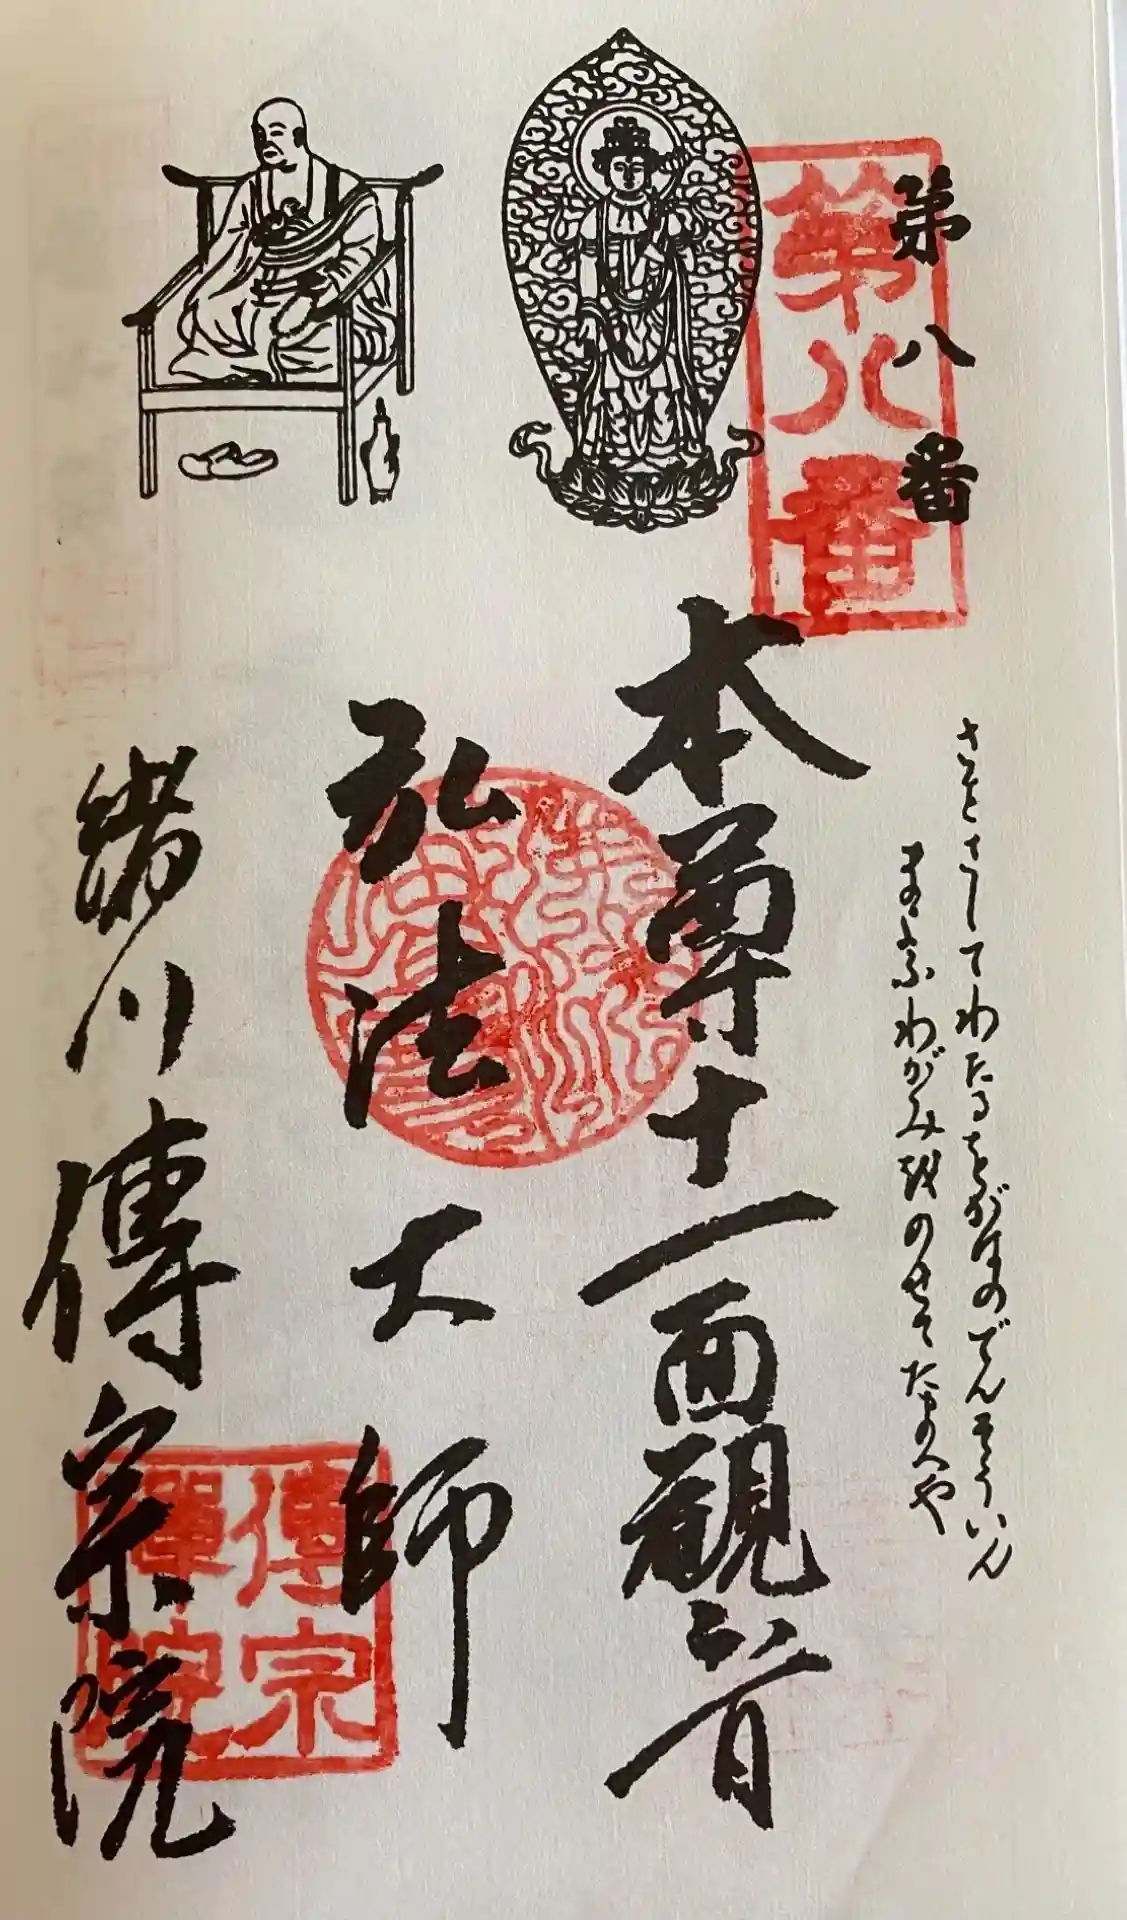 第八番
第八番
さとさしてわたるをがはのでんそういん
まよふわがみ越のせてたまへや
本尊十一面観音
弘法大師
緒川傳宗院
傳宗
禅院